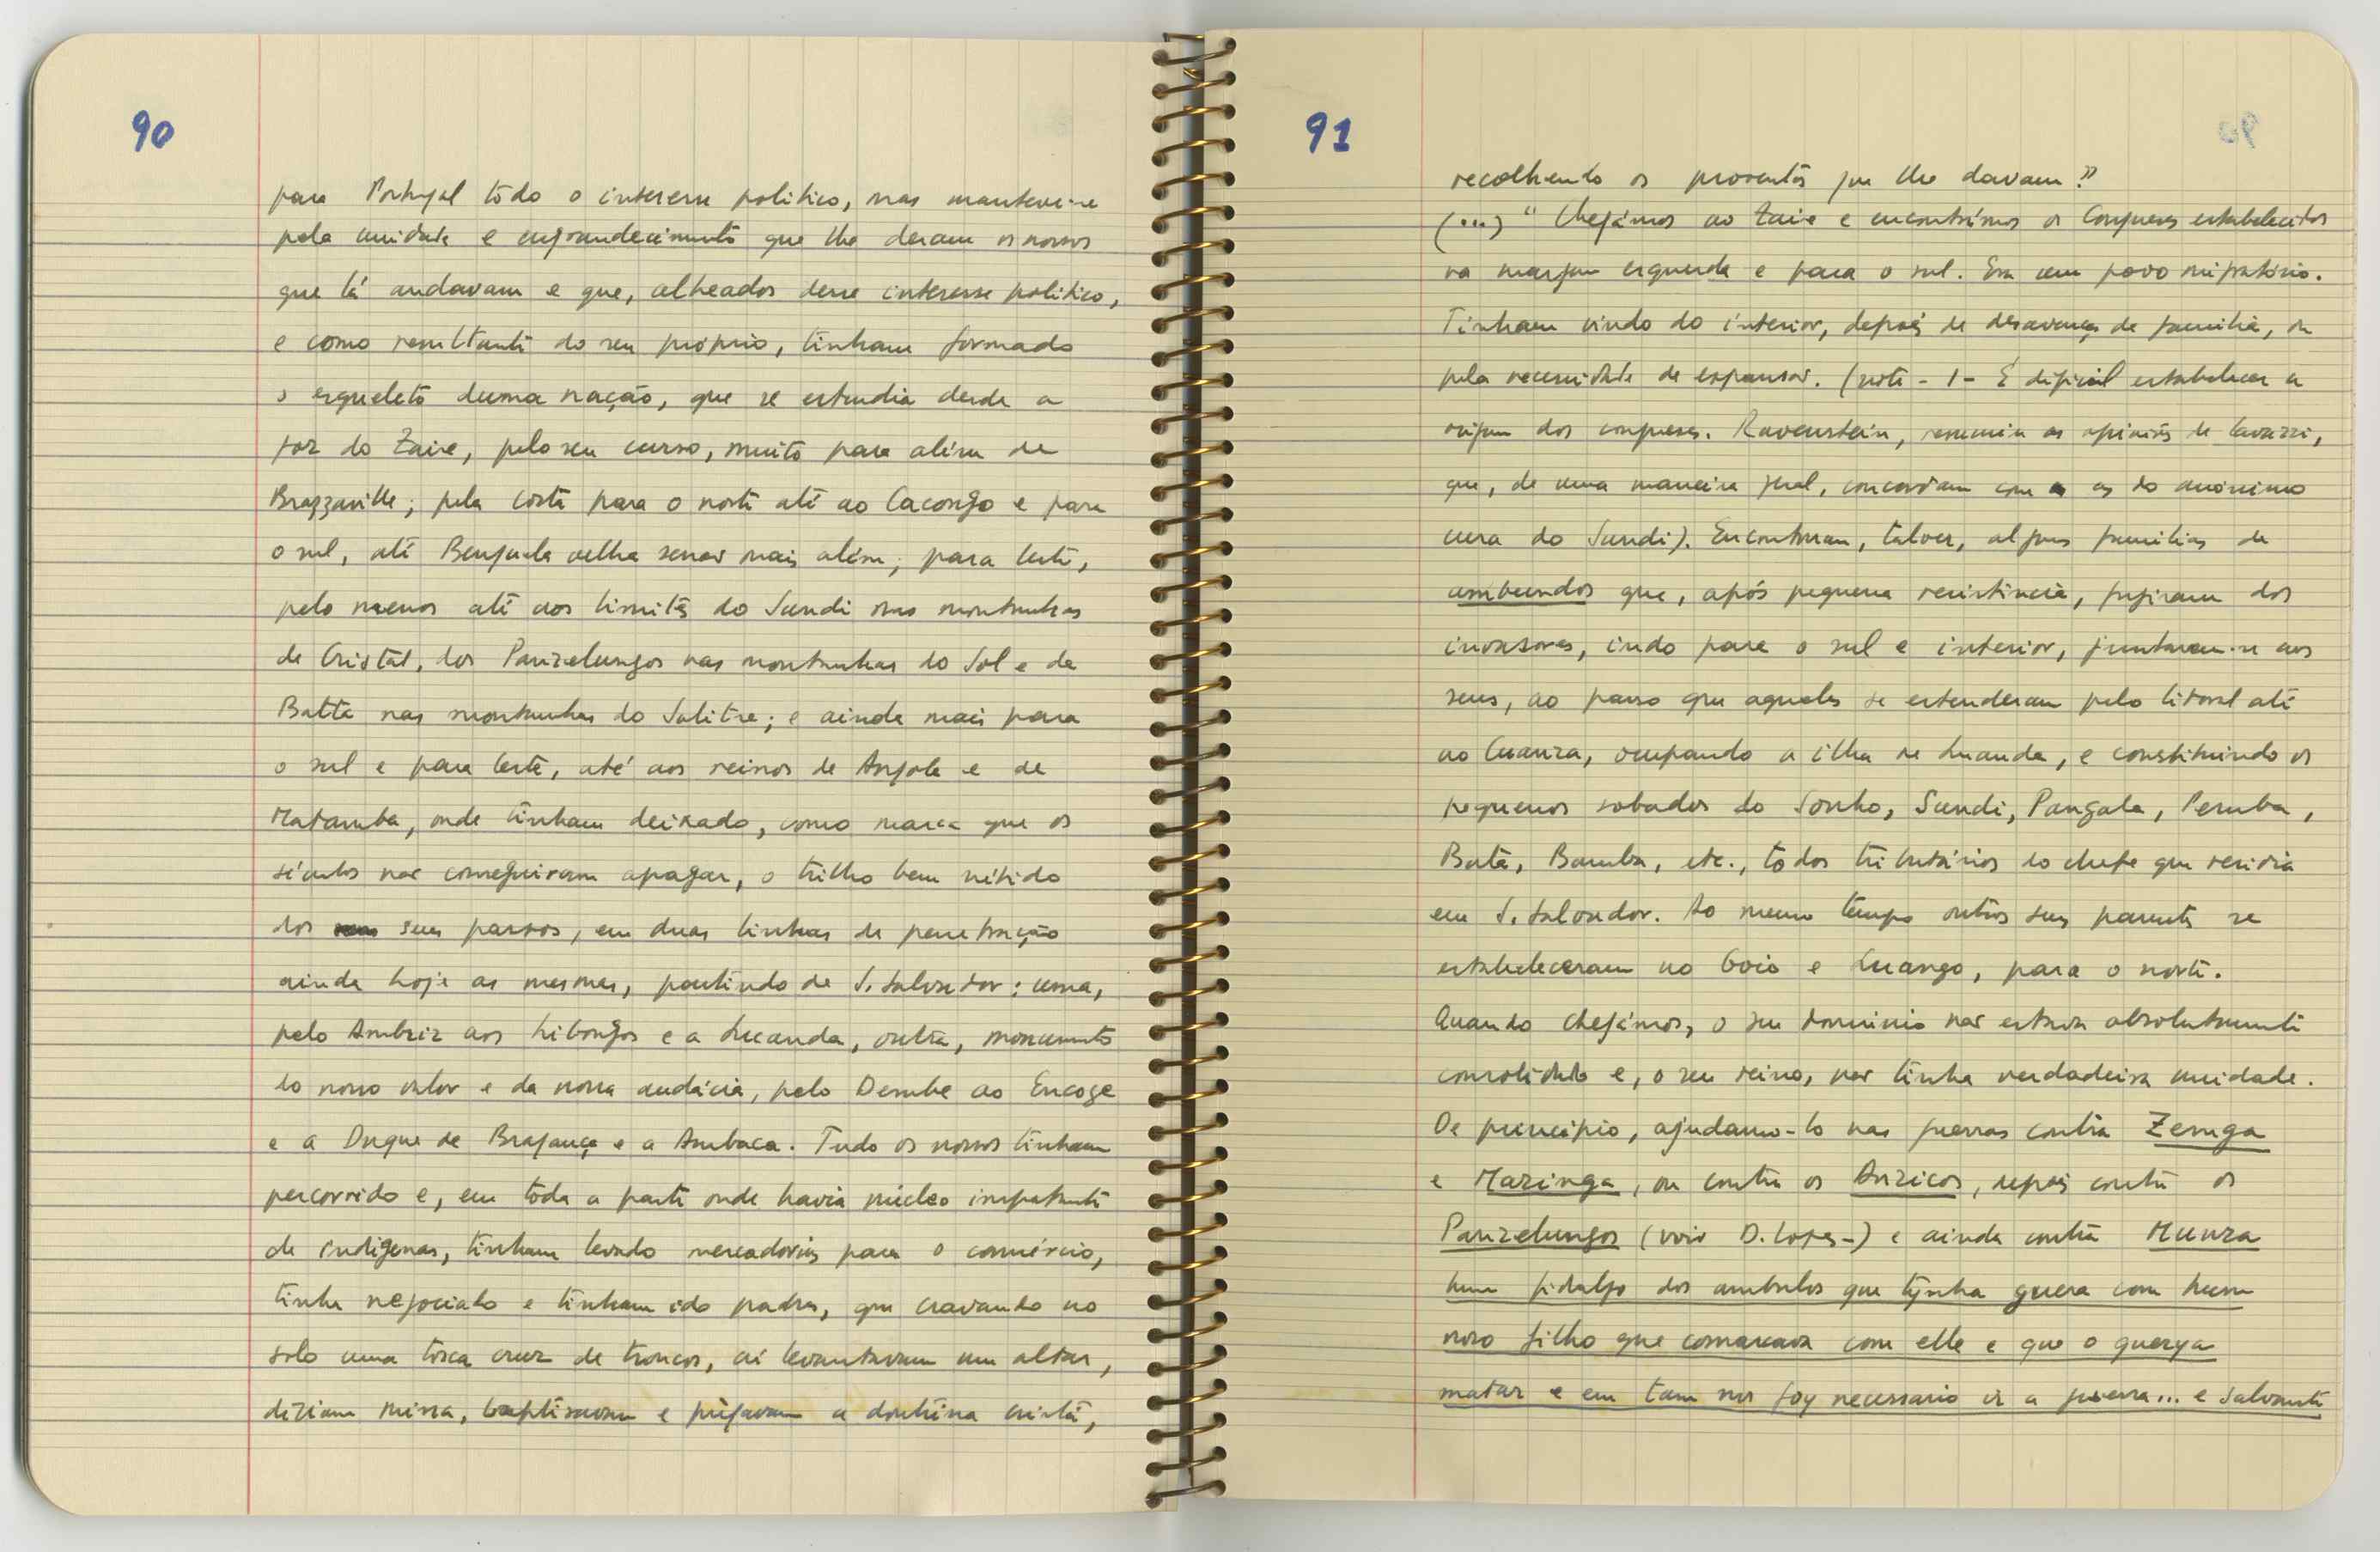 90
para Portugal todo o interesse politico, mas manteve-se
pela unidade e engrandecimento que lhe deram os nossos
que lá andavam e que, alheados desse interesse politico,
e como resultante do seu próprio, tinham formado
o esqueleto duma nação, que se estendia desde a
foz do Zaire, pelo seu curso, muito para além de
Brazzaville; pela costa para o norte até ao Cacongo e para
o sul, até Benguela velha senão mais além; para leste,
pelo menos até aos limites do Sundi nas montanhas
de Cristal, dos Panzelungos nas montanhas do Sol e da
Batta nas montanhas do Salitre; e ainda mais para
o sul e para leste, até aos reinos de Angola e de
Matamba, onde tinham deixado, como marca que os
séculos não conseguiram apagar, o trilho bem nítido
dos seus passos, em duas linhas de penetração
ainda hoje as mesmas, partindo de S. Salvador: uma,
pelo Ambriz aos Libongos e a Luanda, outra, monumento
do nosso valor e da nossa audácia, pelo Dembe ao Encoge
e a Duque de Bragança e a Ambaca. Tudo os nossos tinham
percorrido e, em toda a parte onde havia núcleo importante
de indigenas, tinham levado mercadorias para o comércio,
tinha negociado e tinham ido padres, que cravando no
solo uma tosca cruz de troncos, aí levantavam um altar,
diziam missa, baptisavam e prégavam a doutrina cristã,
91
recolhendo os proventos que lhe davam?
(...) " Chegámos ao Zaire e encontrámos os Congueses estabelecidos
na margem esquerda e para o sul. Era um povo migratório.
Tinham vindo do interior, depois de desavenças de familia, ou
pela necessidade de expansão. (note - 1 - É dificil estabelecer a
origem dos congueses. Ravenstein, resumiu as opiniões de Cavazzi,
que, de uma maneira geral, concordam com as do anónimo
cura do Sundi). Encontraram, talvez, algumas familias de
ambundos que, após pequena resistência, fugiram dos
invasores, indo para o sul e interior, juntaram-se aos
seus, ao passo que aqueles se estenderam pelo litoral até
ao Cuanza, ocupando a ilha de Luanda, e constituindo os
pequenos sobados do Sonho, Sundi, Pangala, Pemba,
Bata, Bamba, etc., todos tributários do chefe que residia
em S. Salvador. Ao mesmo tempo outros seus parentes se
estabeleceram no Goio e Luango, para o norte.
Quando chegámos, o seu dominio não estava absolutamente
consolidado e, o seu reino, não tinha verdadeira unidade.
De principio, ajudamo-lo nas guerras contra Zemga
e Mazinga, ou contra os Anzicos, depois contra os
Panzelungos (voir D. Lopes-) e ainda contra Munza
hum fidalgo dos ambulos que tynha guera com hum
noso filho que comarcava com elle e que o querya
matar e em tam nos foy necessario ir a guerra... e salvante